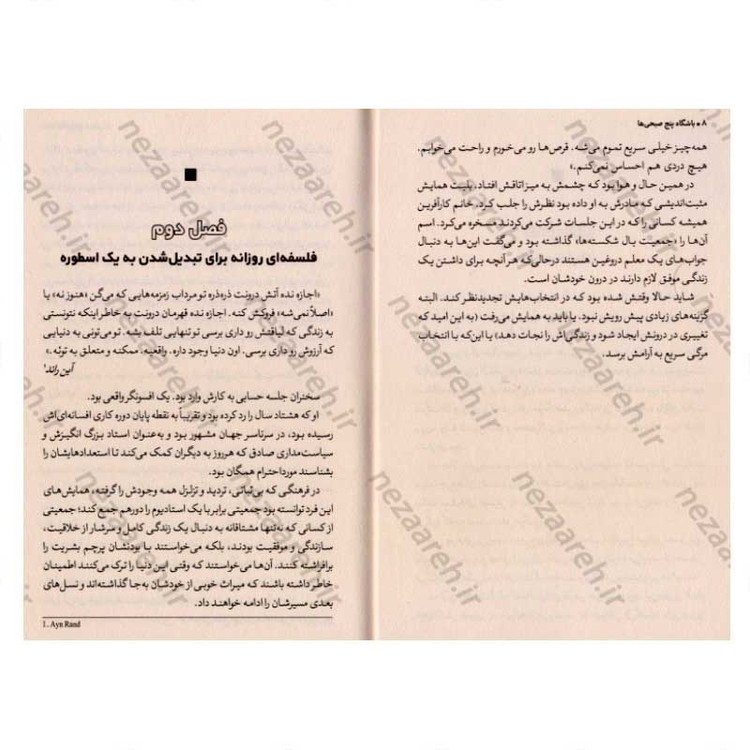 ۸ • باشگاه پنج صبحی‌ها
همه‌چیز خیلی سریع تموم می‌شه. قرص‌ها رو می‌خورم و راحت می‌خوابم.
هیچ دردی هم احساس نمی‌کنم.»
در همین حال و هوا بود که چشمش به میز اتاقش افتاد، بلیت همایش
مثبت‌اندیشی که مادرش به او داده بود نظرش را جلب کرد. خانم کارآفرین
همیشه کسانی را که در این جلسات شرکت می‌کردند مسخره می‌کرد. اسم
آن‌ها را «جمعیت بال شکسته‌ها» گذاشته بود و می‌گفت این‌ها به دنبال
جواب‌های یک معلم دروغین هستند درحالی‌که هر آنچه برای داشتن یک
زندگی موفق لازم دارند در درون خودشان است.
شاید حالا وقتش شده بود که در انتخاب‌هایش تجدیدنظر کند. البته
گزینه‌های زیادی پیش رویش نبود. یا باید به همایش می‌رفت (به این امید که
تغییری در درونش ایجاد شود و زندگی‌اش را نجات دهد) یا این‌که با انتخاب
مرگی سریع به آرامش برسد.
فصل دوم
فلسفه‌ای روزانه برای تبدیل‌شدن به یک اسطوره
«اجازه نده آتش درونت ذره‌ذره تو مرداب زمزمه‌هایی که می‌گن «هنوز نه» یا
«اصلاً نمی‌شه» فروکش کنه. اجازه نده قهرمان درونت به خاطر اینکه نتونستی
به زندگی که لیاقتش رو داری برسی تو تنهایی تلف بشه. تو می‌تونی به دنیایی
که آرزوش رو داری برسی. اون دنیا وجود داره. واقعیه. ممکنه و متعلق به توئه.»
آین راند۱
سخنران جلسه حسابی به کارش وارد بود. یک افسونگر واقعی بود.
او که هشتاد سال را رد کرده بود و تقریباً به نقطه پایان دوره کاری افسانه‌ای‌اش
رسیده بود، در سرتاسر جهان مشهور بود و به‌عنوان استاد بزرگ انگیزش و
سیاست‌مداری صادق که هر روز به دیگران کمک می‌کند تا استعدادهایشان را
بشناسند مورد احترام همگان بود.
در فرهنگی که بی‌ثباتی، تردید و تزلزل همه وجودش را گرفته، همایش‌های
این فرد توانسته بود جمعیتی برابر با یک استادیوم را دور هم جمع کند؛ جمعیتی
از کسانی که نه‌تنها مشتاقانه به دنبال یک زندگی کامل و سرشار از خلاقیت،
سازندگی و موفقیت بودند، بلکه می‌خواستند با بودنشان پرچم بشریت را
برافراشته کنند. آن‌ها می‌خواستند که وقتی این دنیا را ترک می‌کنند اطمینان
خاطر داشته باشند که میراث خوبی از خودشان به‌جا گذاشته‌اند و نسل‌های
بعدی مسیرشان را ادامه خواهند داد.
1. Ayn Rand
nezaareh.ir